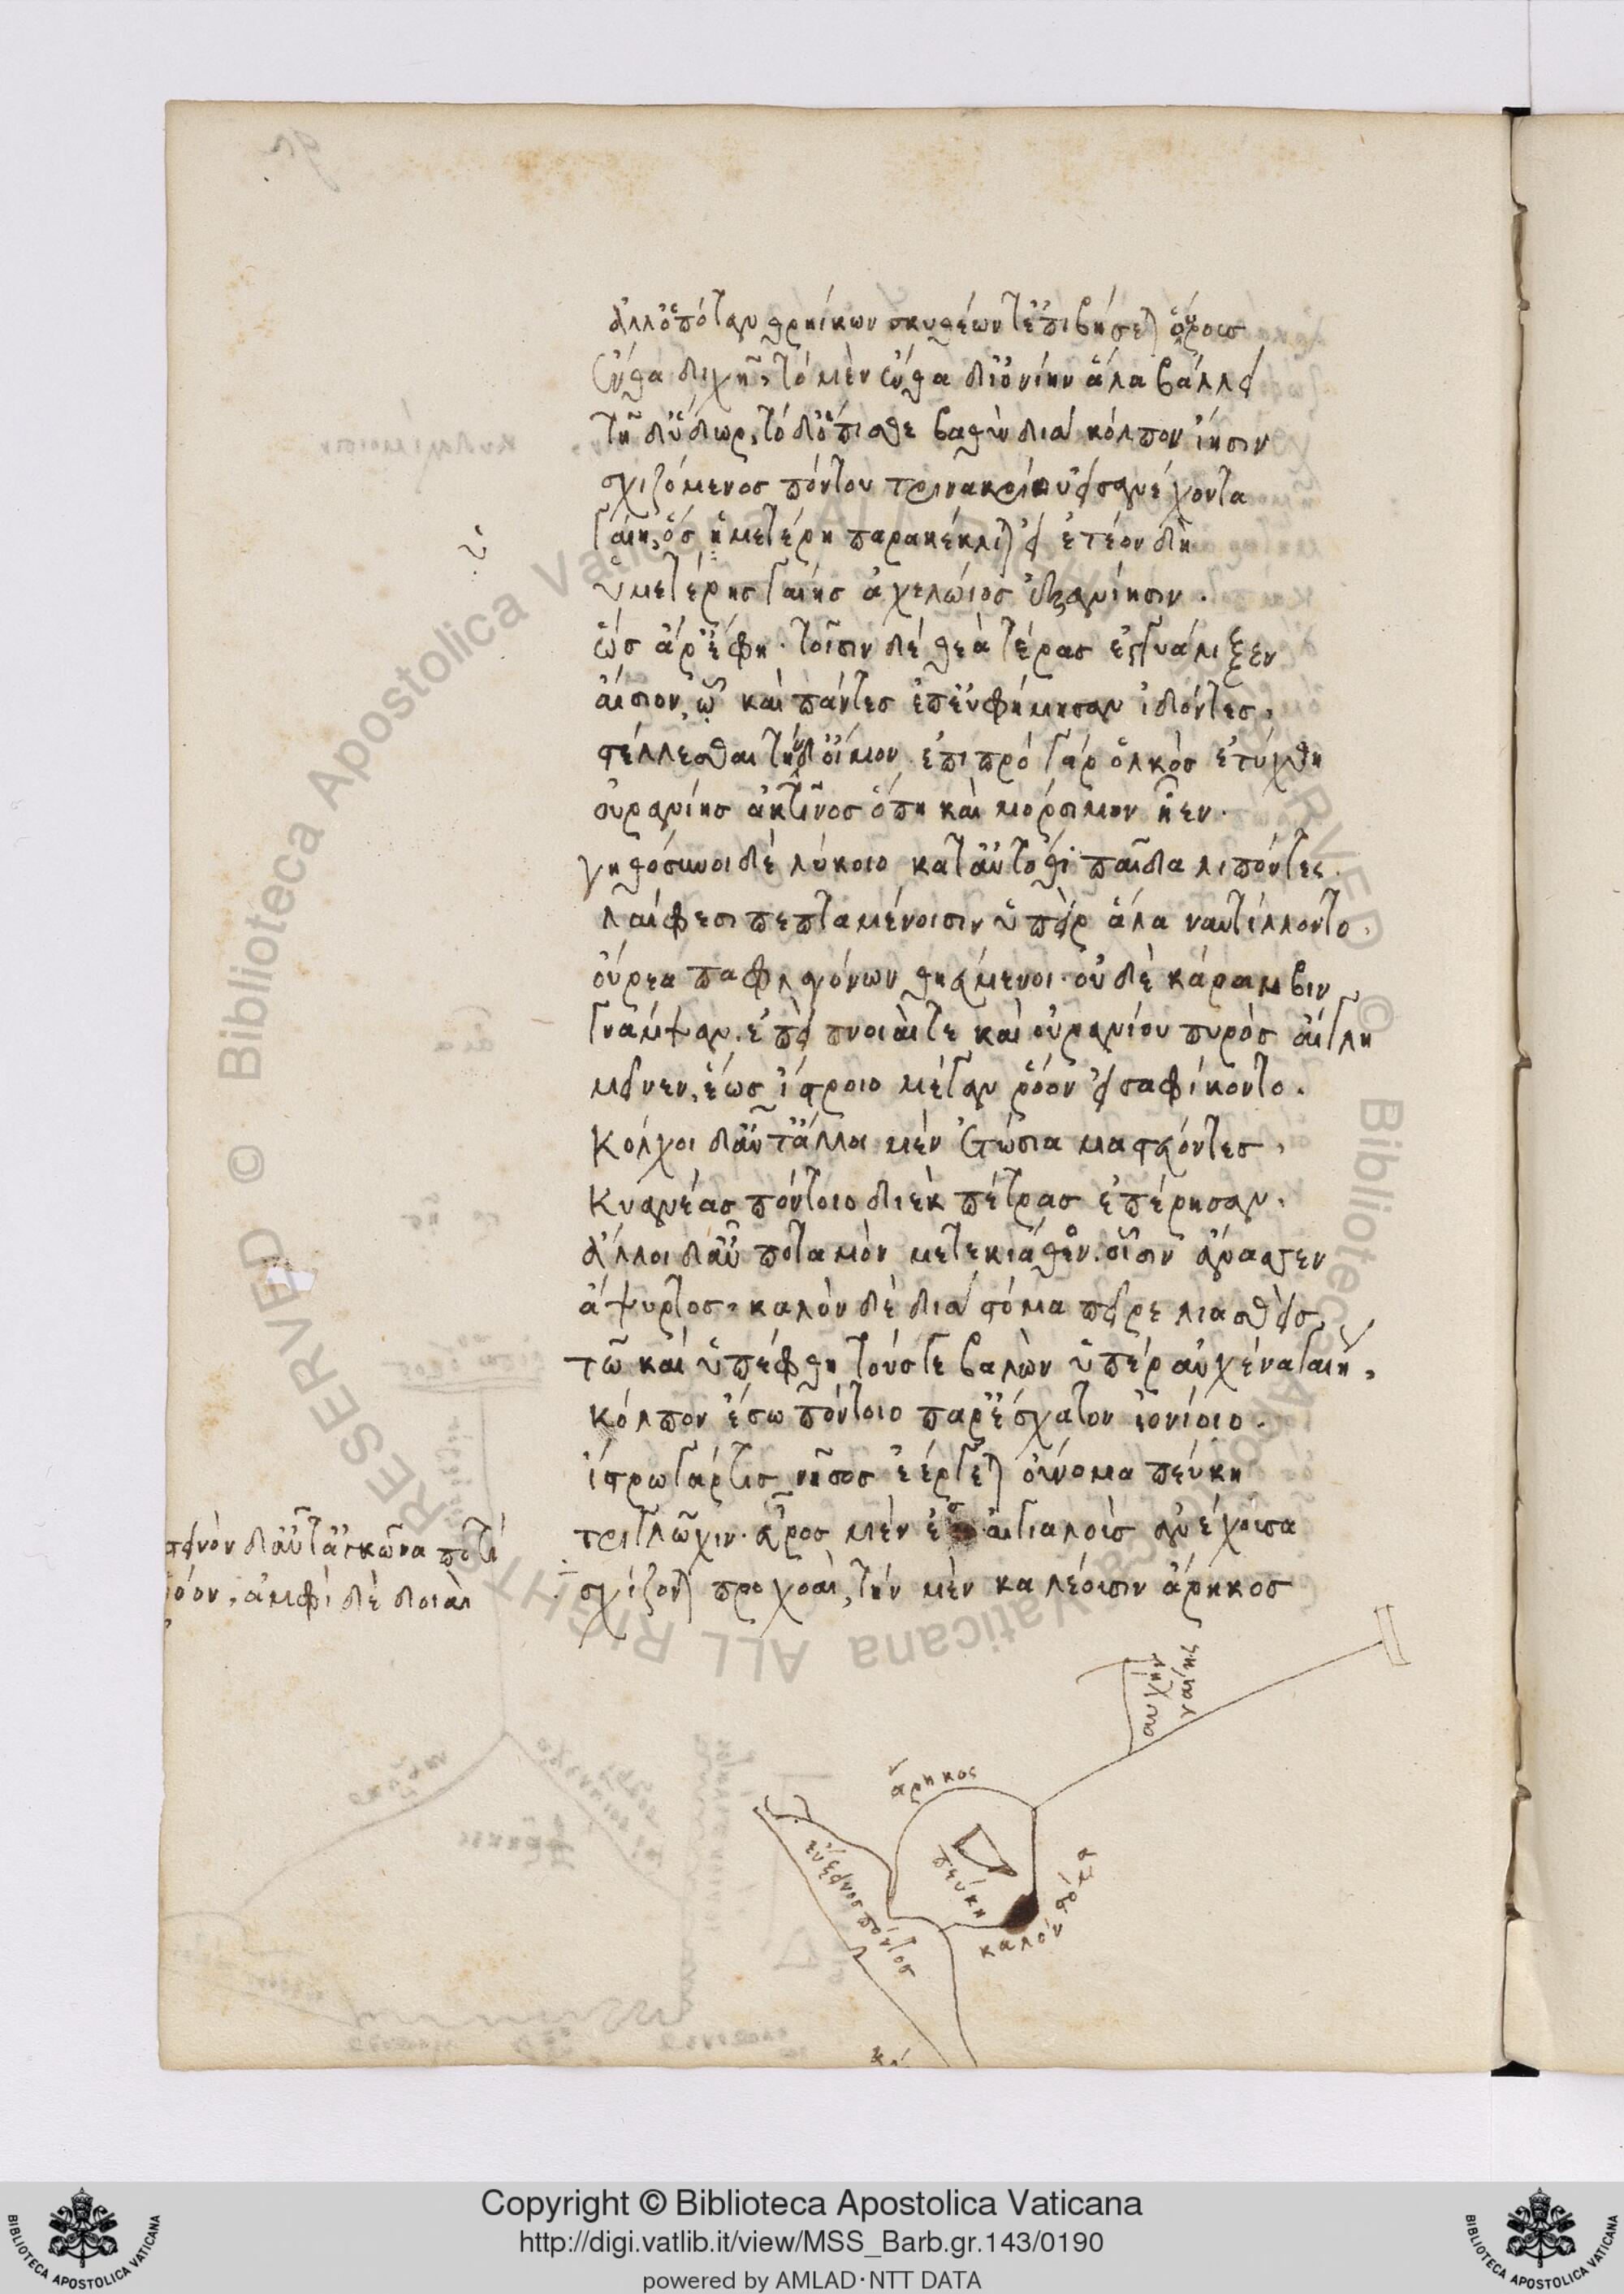 ἀλλ' ὁπόταν θρηίκων σκυθέων τ' ἐπιβήσεται οὔρους
ἔνθα διχῆ, τὸ μὲν ἔνθα δι' ἰονίην ἅλα βάλλει
τῆ δ' ὕδωρ, τὸ δ' ὄπισθε βαθὺν διὰ κόλπον ἵησιν
σχιζόμενος πόντου τρινακρίου εἰσανέχοντα
γαίη, ὃς ἡμετέρη παρακέκλιται εἰ ἐτεὸν δὴ
ὑμετέρης γαίης ἀχελώιος ἐξανίησιν.
ὣς ἄρ' ἔφη. τοῖσιν δὲ θεὰ τέρας ἐγγυάλιξεν
αἴσιον, ᾧ καὶ πάντες ἐπευφήμησαν ἰδόντες,
στέλλεσθαι τήνδ' οἶμον. ἐπιπρὸ γὰρ ὁλκὸς ἐτύχθη
οὐρανίης ἀκτῖνος ὅπη καὶ μόρσιμον ἦεν.
γηθόσυνοι δὲ λύκοιο κατ' αὐτόθι παῖδα λιπόντες.
λαίφεσι πεπταμένοισιν ὑπεὶρ ἅλα ναυτίλλοντο.
οὔρεα παφλαγόνων θηεύμενοι. οὐδὲ κάραμβιν
γνάμψαν. ἐπεὶ πνοιαί τε καὶ οὐρανίου πυρὸς αἴγλη
μεῖνεν, ἕως ἴστροιο μέγαν ῥόον εἰσαφίκοντο.
Κόλχοι δ' αὖτ' ἄλλοι μὲν ἐτώσια μαστεύοντες,
Κυανέας πόντοιο διὲκ πέτρας ἐπέρησαν.
ἄλλοι δ' αὖ ποταμὸν μετεκίαθον. οἷσιν ἄνασσεν
ἄψυρτος. καλὸν δὲ διὰ στόμα πεῖρε λιασθείς
τῶ καὶ ὑπέφθη τούς γε βαλὼν ὑπὲρ αὐχένα γαίης,
κόλπον ἔσω πόντοιο παρ' ἔσχατον ἰονίοιο.
ἴστρω γάρ τις νῆσος ἐέργεται οὔνομα πεύκη
τριγλώχιν. εὖρος μὲν ἐς αἰγιαλοὺς ἀνέχουσα
στεινὸν δ' αὖτ' ἀγκῶνα ποτὶ
ῥόον, ἀμφὶ δὲ δοιαὶ
σχίζονται προχοαί, τὴν μὲν καλέουσιν ἄρηκος
αυχὴν
γαίης
ἄρηκος
πεύκη
καλόν στόμα
εὔξεινος πόντος